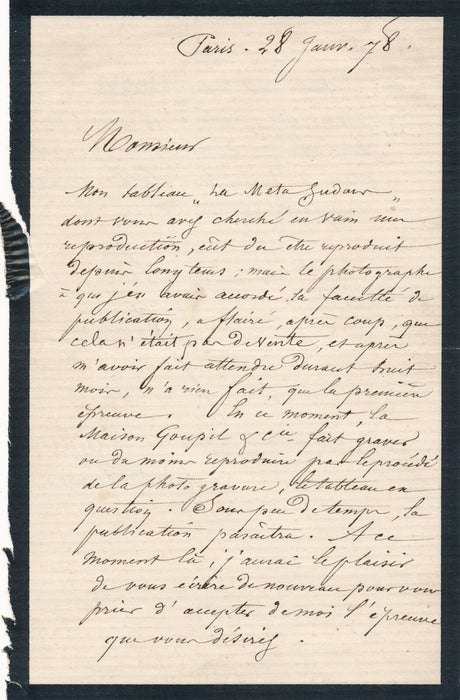 Paris. 28 Janv. 78.
Monsieur
Mon tableau "La Meta Sudans"
dont vous avez cherché en vain une
reproduction, eût du être reproduit
depuis longtems; mais le photographe
à qui j'en avais accordé la faculté de
publication, a flairé, après coup, que
cela n'était pas de vente, et après
m'avoir fait attendre durant huit
mois, n'a rien fait, que la première
épreuve. En ce moment, la
Maison Goupil & Cie fait graver
ou du moins reproduire par le procédé
de la photogravure, le tableau en
question. Sous peu de temps, la
publication paraîtra. A ce
moment là, j'aurai le plaisir
de vous écrire de nouveau pour vous
prier d'accepter de moi l'épreuve
que vous désirez.